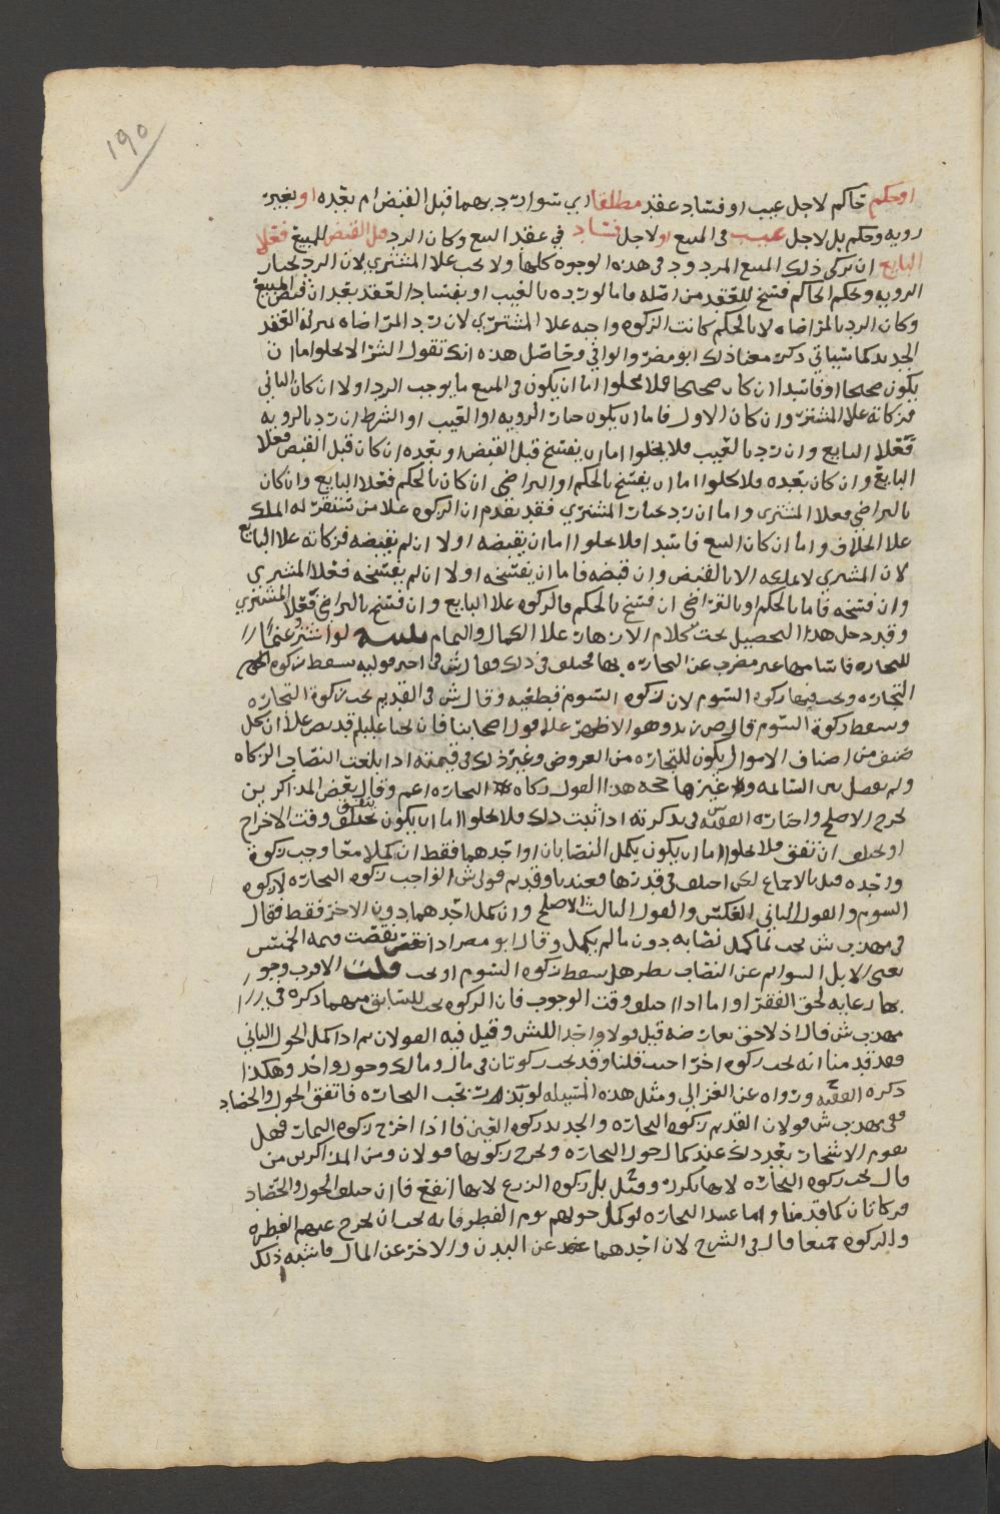 ١٩٠
او حكم حاكم لاجل عيب او فساد عقد مطلقا اي سوا رد بهما قبل القبض ام بعده او بغير
رويه وحكم بل لاجل عيب في المبيع او لاجل فساد في عقد البيع وكان الرد قبل القبض للمبيع فعلا
البايع ان يزكي ذلك المبيع المردود في هذه الوجوه كلها ولا يجب علا المشتري لان الرد بخيار
الرويه وبحكم الحاكم فسخ للعقد من اصله فاما لو رده بالعيب او بفساد العقد بعد ان قبض المبيع
وكان الرد بالمراضاه لا بالحكم كانت الزكوه واجبه علا المشتري لان رد المراضاه بمنزلة العقد
الجديد كما سياتي ذكر معنا ذلك ابو مضر والوافي وحاصل هذه انك تقول الشرا لا يخلوا اما ان
يكون صحيحا او فاسدا ان كان صحيحا فلا يخلوا اما ان يكون في المبيع ما يوجب الرد او لا ان كان الثاني
فزكاته علا المشتر وان كان الاول فاما ان يكون خيار الرويه او العيب او الشرط ان رد بالرويه
فعلا البايع وان رد بالعيب فلا يخلوا اما ان يفسخ قبل القبض او بعده ان كان قبل القبض فعلا
البايع وان كان بعده فلا يخلوا اما ان يفسخ بالحكم او التراضي ان كان بالحكم فعلا البايع وان كان
بالتراضي فعلا المشتري واما ان رد بخيار المشتري فقد تقدم ان الزكوه علا من تستقر له الملك
علا الخلاف واما ان كان البيع فاسدا فلا يخلوا اما ان يقبضه او لا ان لم يقبضه فزكاته علا البايع
لان المشتري لا يملكه الا بالقبض وان قبضه فاما ان يفسخه او لا ان لم يفسخه فعلا المشتري
وان فسخه فاما بالحكم او بالتراضي ان فسخ بالحكم فالزكوه علا البايع وان فسخ بالتراضي فعلا المشتري
وقد دخل هذا التحصيل تحت كلام الازهار علا الكمال والتمام تنبيه لو اشترو غنما
للتجاره فاسامها غير مضرب عن التجاره بها فختلف في ذلك فقال ش في اخير قوليه يسقط زكوه
التجاره ويجب فيها زكوه السوم لان زكوه السوم قطعيه وقال ش في القديم يجب زكوة التجاره
ويسقط زكوة السوم قال ص زيد وهو الاظهر علا قول اصحابنا فان يحيا عليلم قد نص علا ان كل
صنف من اصناف الاموال يكون للتجاره من العروض وغير ذلك في قيمته اذا بلغت النصاب الزكاه
ولم يفصل بين السايمه وغيرها حجه هذا القول زكاه التجاره اعم وقال بعض المذاكرين
يخرج الاصلح واختاره الفقيه س في تذكرته اذا ثبت ذلك فلا يخلوا اما ان يكون يتفق وقت الاخراج
او يختلف ان تفق فلا يخلوا اما ان يكون يكمل النصابان او احدهما فقط ان كملا معا وجب زكوة
واحده قيل بالاجماع لكن اختلف في قدرها فعندنا وقديم قولي ش الواجب زكوه التجاره لا زكوه
السوم والقول الثاني العكس والقول الثالث الاصلح وان كمل احدهما دون الاخر فقط فقال
في مهذب ش يجب فيما كمل نصابه دون ما لم يكمل وقال ابو مضر اذا نقصت قيمه الخمس
يعني الابل السوايم عن النصاب نظر هل يسقط زكوه السوم او يجب قلت الاقرب وجو
بها رعايه لحق الفقرا واما اذا اختلف وقت الوجوب فان الزكوه يجب للسابق منهما ذكره في
مهذب ش قال اذ لا حق يعارضه قيل قولا واحدا للش وقيل فيه القولان ثم اذا كمل الحول الثاني
فقد قدمنا انه يجب زكوه اخرا حيث قلنا وقد يجب زكوتان في مال ومالك وحول واحد وهكذا
ذكره الفقيه ورواه عن الغزالي ومثل هذه المسيله لو بذر بحب التجاره فاتفق الحول والحصاد
ففي مهذب ش قولان القديم زكوه التجاره والجديد زكوه العين فاذا اخرج زكوه الثمار فهل
يقوم الاشجار بعد ذلك عند كمال حول التجاره ويخرج زكوتها قولان ومن المذاكرين من
قال يجب زكوه التجاره لانها تكرر وقيل بل زكوه الزرع لانها انفع فان اختلف الحول والحصاد
فزكاتان كما قدمنا واما عبيد التجاره لو كمل حولهم يوم الفطر فانه يجب ان يخرج عنهم الفطره
والزكوه جميعا قال في الشرح لان احدهما عن البدن والاخر عن المال فاشبه ذلك